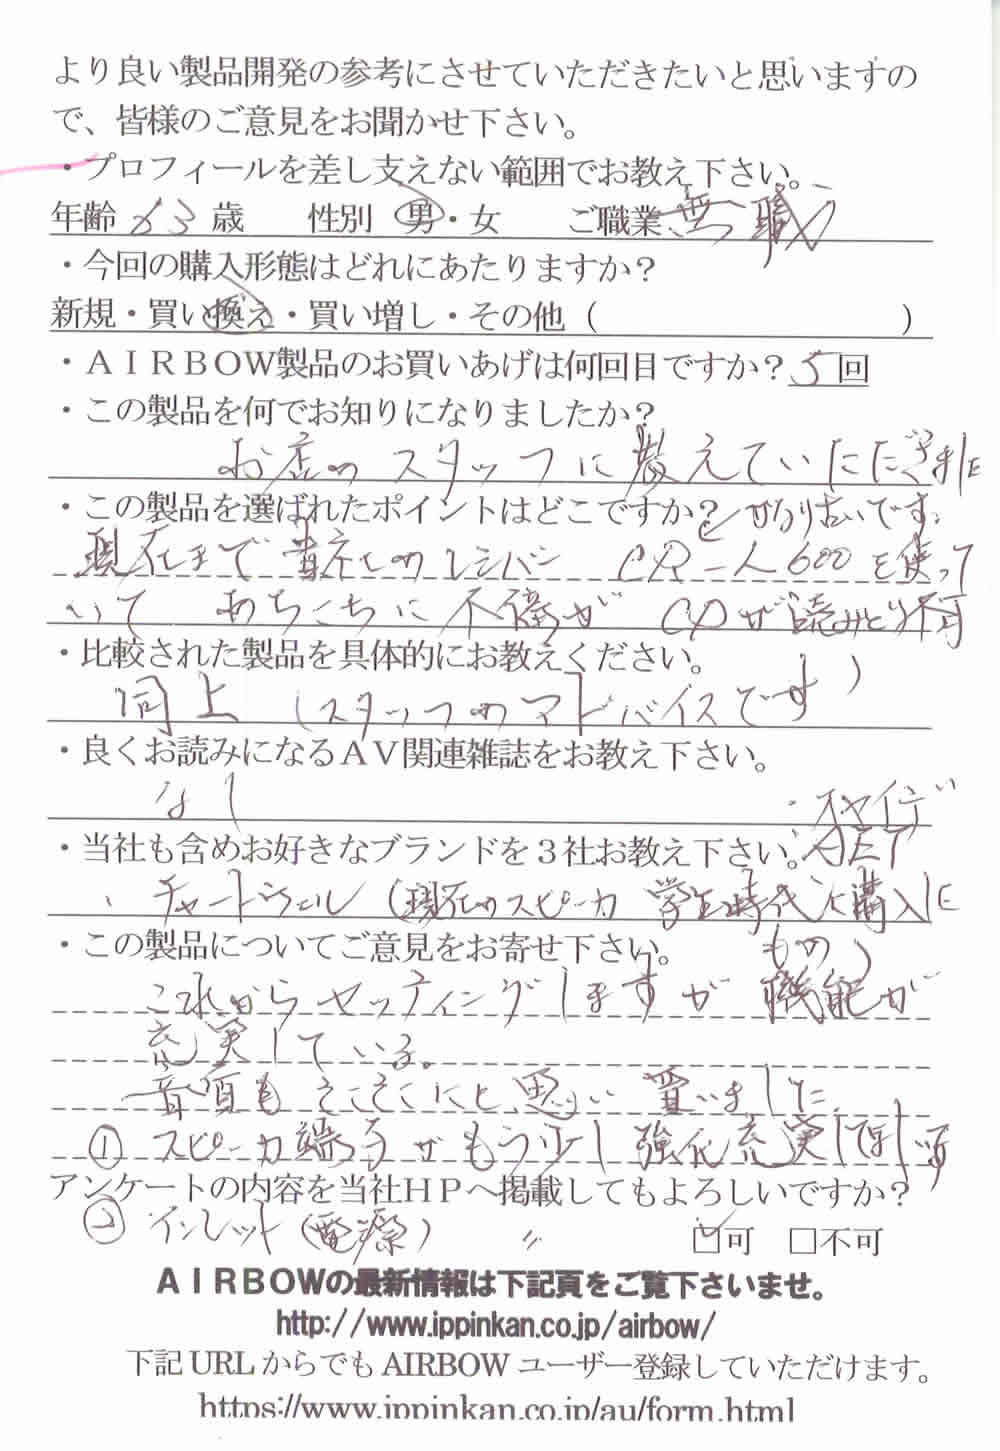 より良い製品開発の参考にさせていただきたいと思いますの
で、皆様のご意見をお聞かせ下さい。
・プロフィールを差し支えない範囲でお教え下さい。
年齢 63 歳 性別 男・女 ご職業 無職
・今回の購入形態はどれにあたりますか？
新規・買い換え・買い増し・その他（ ）
・ＡＩＲＢＯＷ製品のお買いあげは何回目ですか？ 5 回
・この製品を何でお知りになりましたか？
お店のスタッフに教えていただきました
・この製品を選ばれたポイントはどこですか？ かなり古いです。
現在まで貴社のレシーバー CR- 600を使って
いて あちこちに不備が CDが読みとり不可
・比較された製品を具体的にお教えください。
同上 （スタッフのアドバイスです）
・良くお読みになるＡＶ関連雑誌をお教え下さい。
なし
・当社も含めお好きなブランドを３社お教え下さい。 AET
、チャートウェル（現在のスピーカ 学生時代に購入した
もの）
・この製品についてご意見をお寄せ下さい。
これからセッティングしますが 機能が
充実している。
音質もそこそこだと思い 買いました
① スピーカ端子がもう少し強化充実してほしいです
アンケートの内容を当社ＨＰへ掲載してもよろしいですか？
② インレット（電源） 〃
☑可 □不可
ＡＩＲＢＯＷの最新情報は下記頁をご覧下さいませ。
http://www.ippinkan.co.jp/airbow/
下記 URL からでも AIRBOW ユーザー登録していただけます。
https://www.ippinkan.co.jp/au/form.html